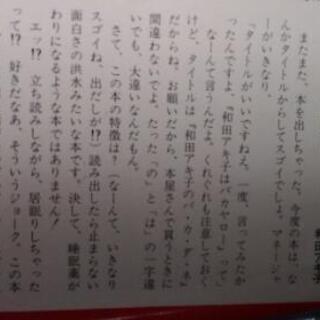 和田アキ子
またまた、本を出しちゃった。今度の本は、な
んかタイトルからしてスゴイでしょ。マネージャ
ーがいきなり
『タイトルがいいですねえ、一度、言ってみたか
ったんですよ。『和田アキ子はバカヤロー』って』
なーんて言うんだよ。くれぐれも注意しておく
けど、タイトルは『和田アキ子のバ・カ・ダ・ネ』
だからね。お願いだから、本屋さんで買うときに
間違わないでよ。たった「の」と「は」の一字違
いでも、大違いなんだもん。
さて、この本の特徴は？（なーんて、いきなり
スゴイね、出だしが!?）読み出したら止まらない
面白さの洪水みたいな本です。決して、睡眠薬が
わりになるような本ではありません！
エッ!?　立ち読みしながら、居眠りしちゃった
って!?　好きだなあ、そういうジョーク。この本